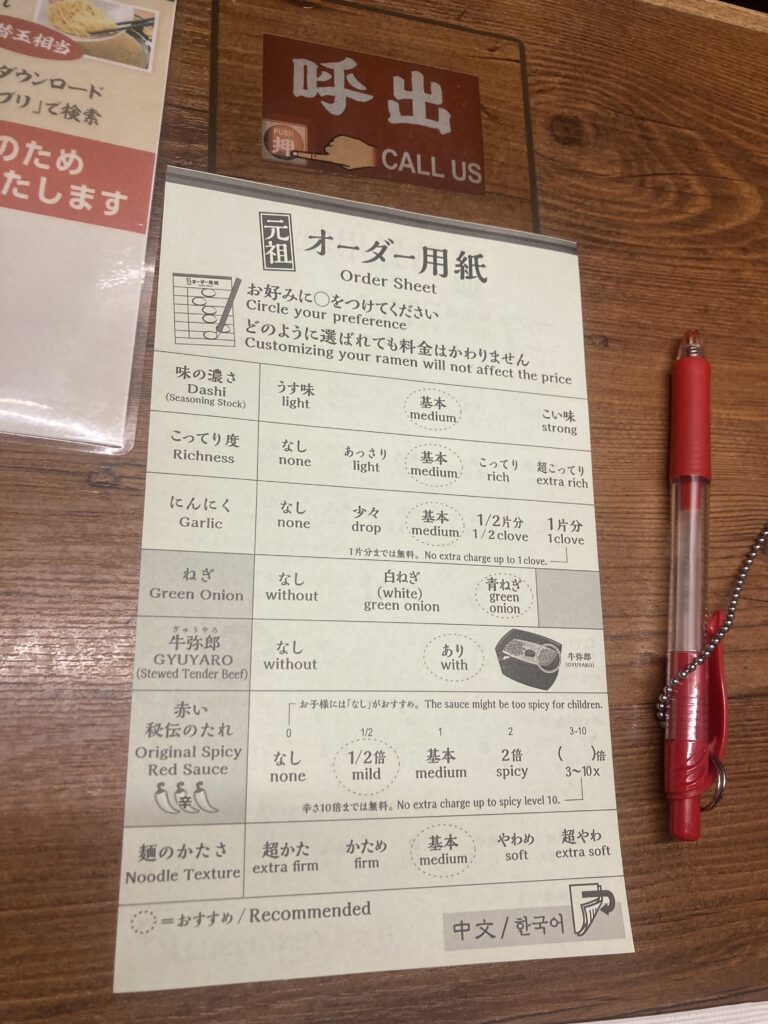 替玉相当
ダウンロード
プリ」で検索
のため
たします
呼出
PUSH
押
CALL US
元祖
オーダー用紙
Order Sheet
お好みに◯をつけてください
Circle your preference
どのように選ばれても料金はかわりません
Customizing your ramen will not affect the price
味の濃さ
Dashi
(Seasoning Stock)
うす味
light
基本
medium
こい味
strong
こってり度
Richness
なし
none
あっさり
light
基本
medium
こってり
rich
超こってり
extra rich
にんにく
Garlic
なし
none
少々
drop
基本
medium
1/2片分
1/2 clove
1片分
1clove
1片分までは無料。No extra charge up to 1 clove.
ねぎ
Green Onion
なし
without
白ねぎ
(white)
green onion
青ねぎ
green
onion
ぎゅうやろ
牛弥郎
GYUYARO
(Stewed Tender Beef)
なし
without
あり
with
牛弥郎
(GYUYARO)
赤い
秘伝のたれ
Original Spicy
Red Sauce
辛
お子様には「なし」がおすすめ。 The sauce might be too spicy for children.
0
なし
none
1/2
1/2倍
mild
1
基本
medium
2
2倍
spicy
3-10
( )倍
3~10x
辛さ10倍までは無料。No extra charge up to spicy level 10.
麺のかたさ
Noodle Texture
超かた
extra firm
かため
firm
基本
medium
やわめ
soft
超やわ
extra soft
=おすすめ / Recommended
中文 / 한국어